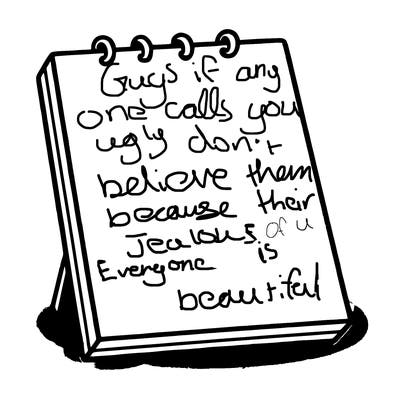 Guys if any
one calls you
ugly don't
believe them
because their
Jealous of u
Everyone is
beautiful